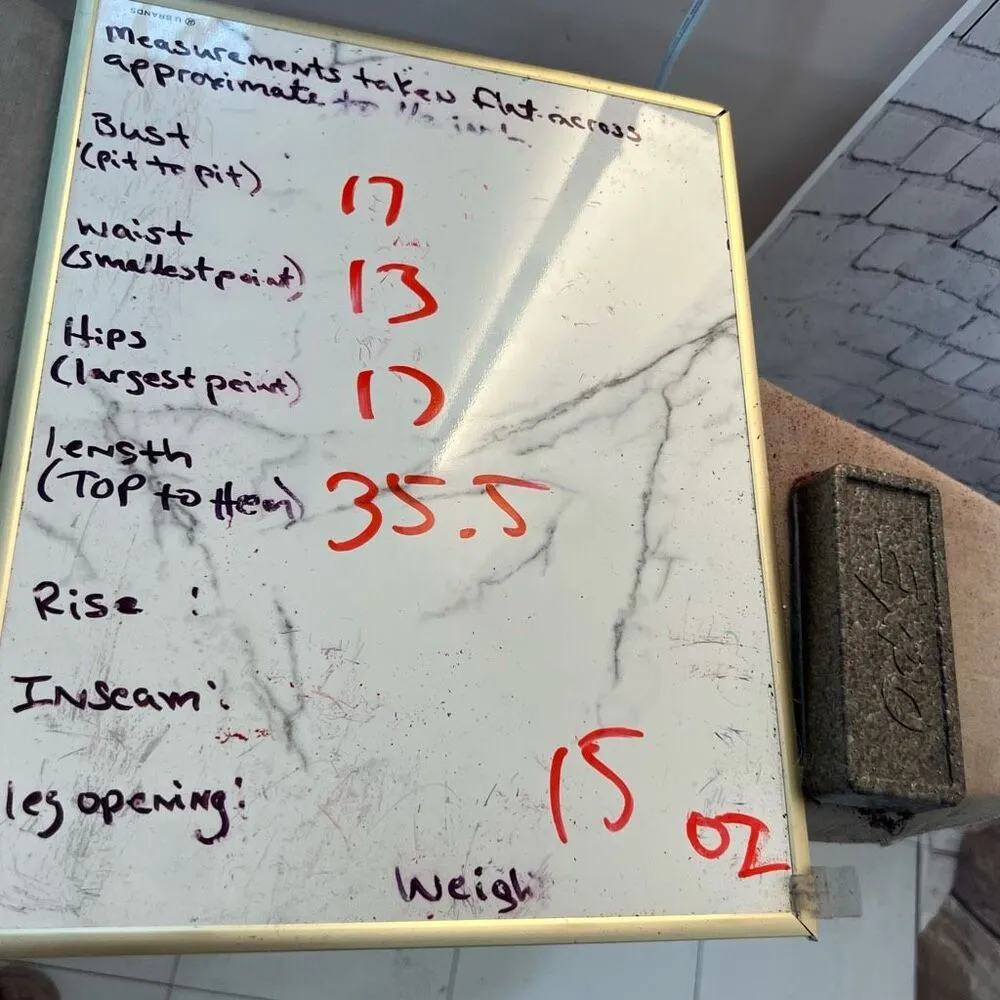 U BRANDS
measurements taken flat across
approximate to the inch.
Bust
(pit to pit)
17
waist
(smallest point)
13
Hips
(largest point)
17
length
(TOP to Hem)
35.5
Rise :
Inseam:
leg opening:
15
oz
Weigh